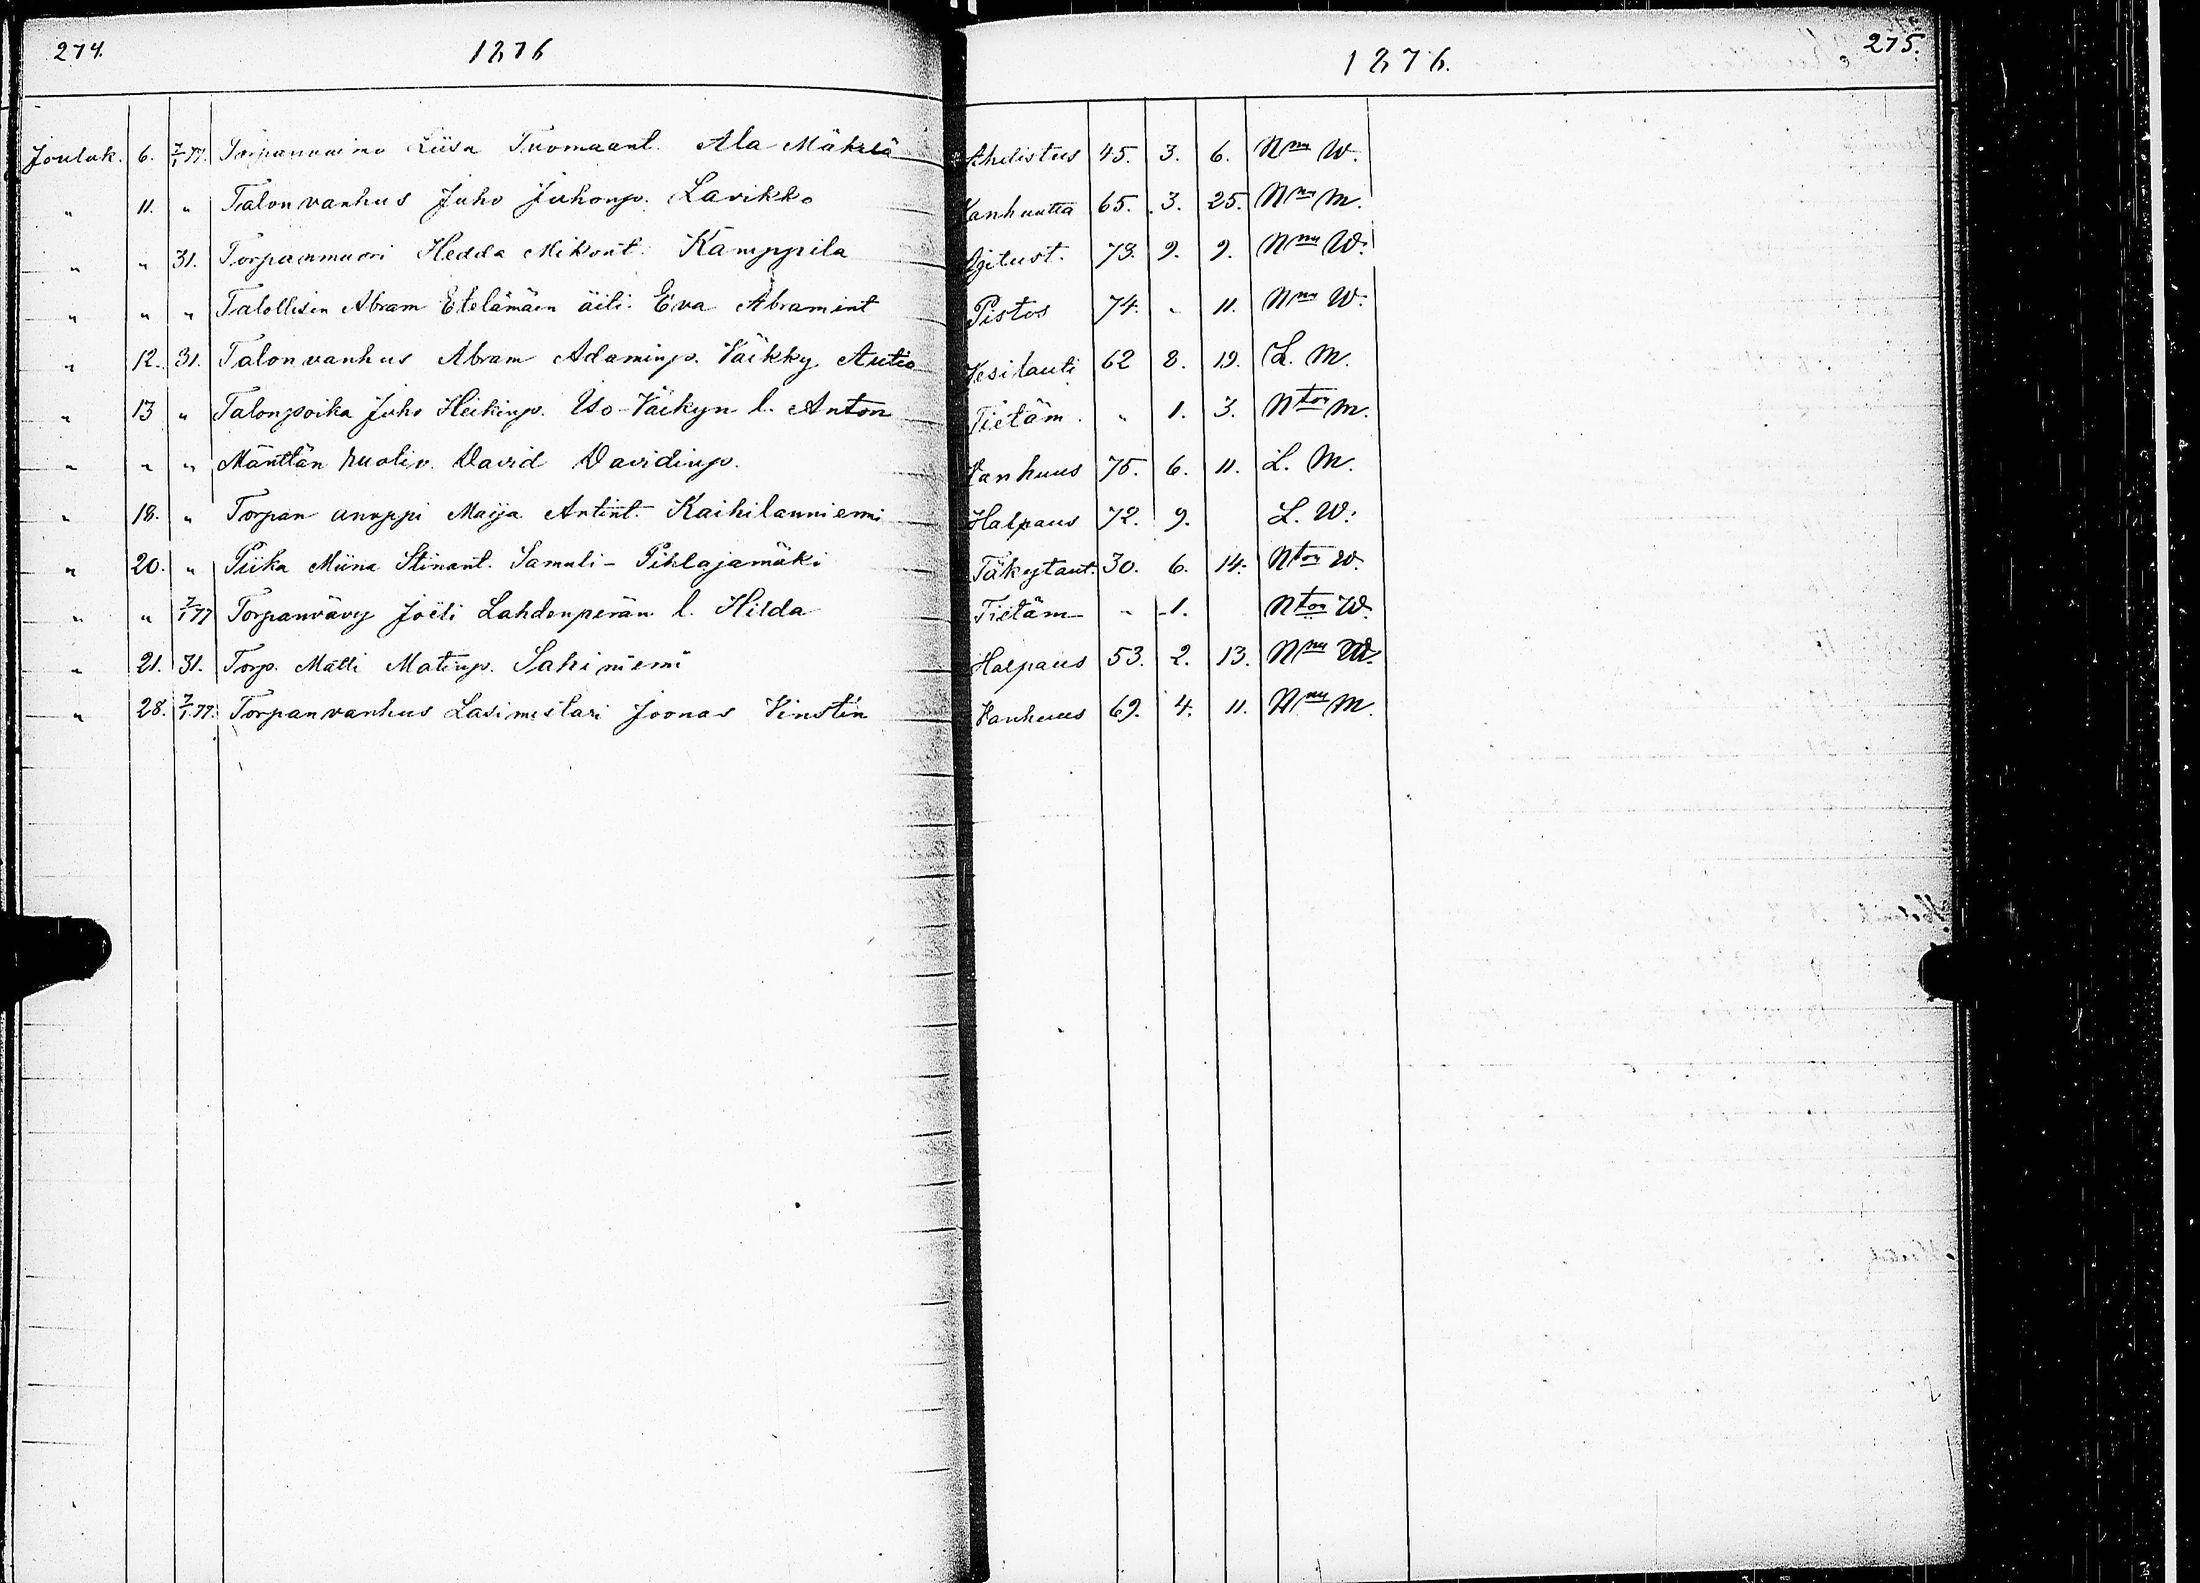 274. 1876
1876. 275.
Jouluk. 6. 7/1 77. Torpanvaimo Liisa Tuomaant. Ala Mäkelä Ahdistus 45. 3. 6. Nnu W.
" 11. " Talonvanhus Juho Juhonp. Lavikko Vanhuutta 65. 3. 25. Nnu M.
" " 31. Torpanmuori Hedda Mikont. Kämppilä Ajitust. 73. 9. 9. Nnu W.
" " " Talollisen Abram Etelämäen äiti Eva Abramint Pistos 74. " 11. Nnu W.
" 12. 31. Talonvanhus Abram Adaminp. Väkky Autio Vesitauti 62 8. 19. L. M.
" 13 " Talonpoika Juho Heikinp. Iso-Väkyn l. Anton Tietäm. " 1. 3. Nton M.
" " " Mänttän huoliv. David Davidinp. Vanhuus 75. 6. 11. L. M.
" 18. " Torpan anoppi Maija Antint. Kaihilanniemi Halpaus 72. 9. L. W.
" 20. " Piika Miina Stinant. Samuli-Pihlajamäki Täkytaut. 30. 6. 14. Nton W.
" " 7/1 77 Torpanvävy Joeli Lahdenperän l. Hilda Tietäm " 1. Nton W.
" 21. 31. Torp. Matti Matinp. Sahiniemi Halpaus 53. 2. 13. Nnu M.
" 28. 7/1 77. Torpanvanhus Lasimestari Joonas Vinstin Vanhuus 69. 4. 11. Nnu M.